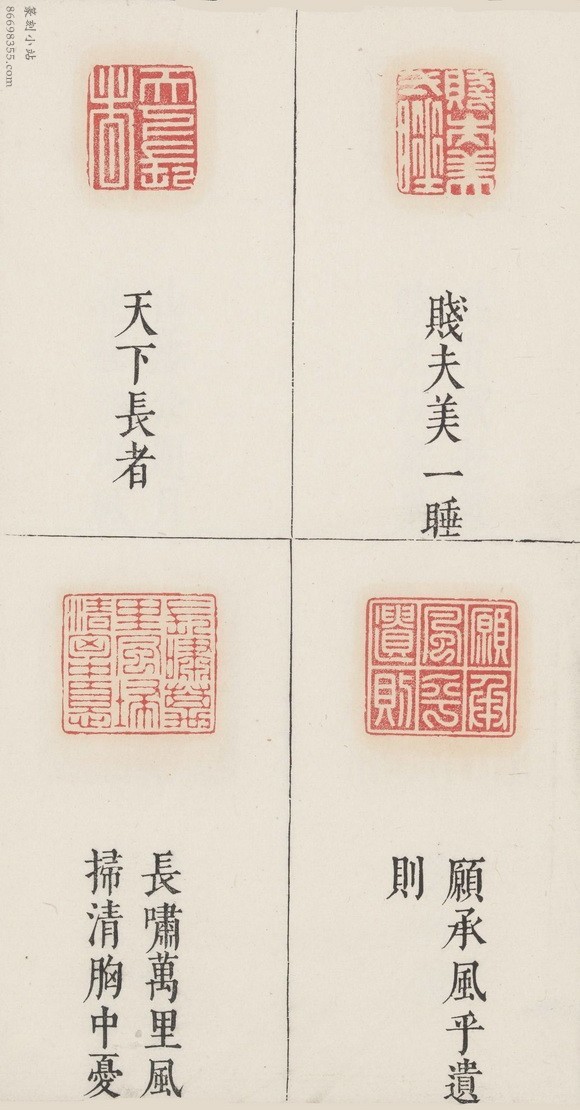 賤夫美一睡
天下長者
願承風乎遺
則
長嘯萬里風
掃清胸中憂
篆刻小站
86698355.com